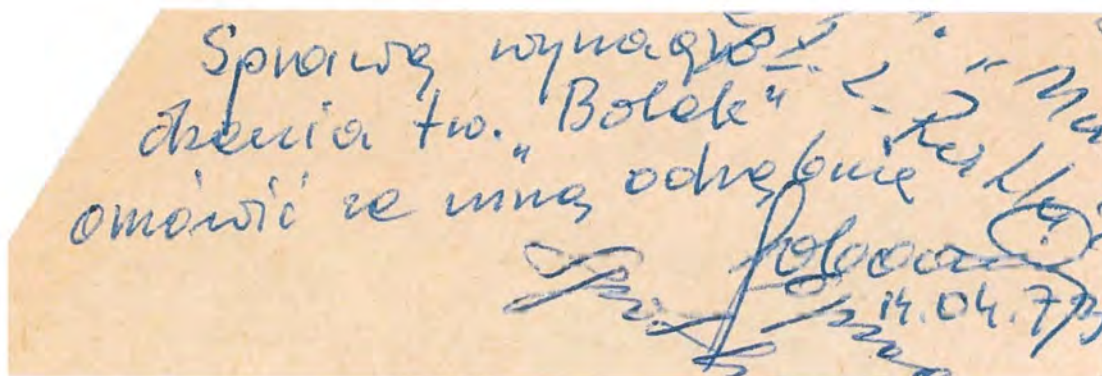 Sprawę wynagro
dzenia tw. „Bolek”
omówić ze mną odrębnie
14.04.73